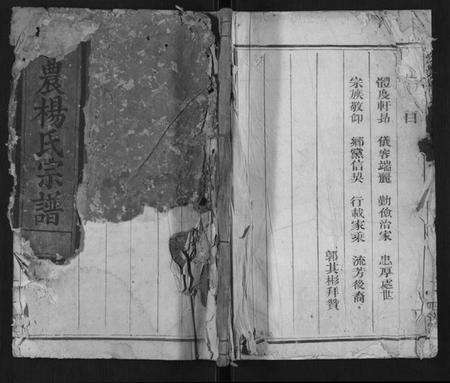 農楊氏宗譜
體度軒昂 儀容端麗 勤儉治家 忠厚處世
宗族敬仰 鄉黨信契 行載家乘 流芳後裔
郭其彬拜贊